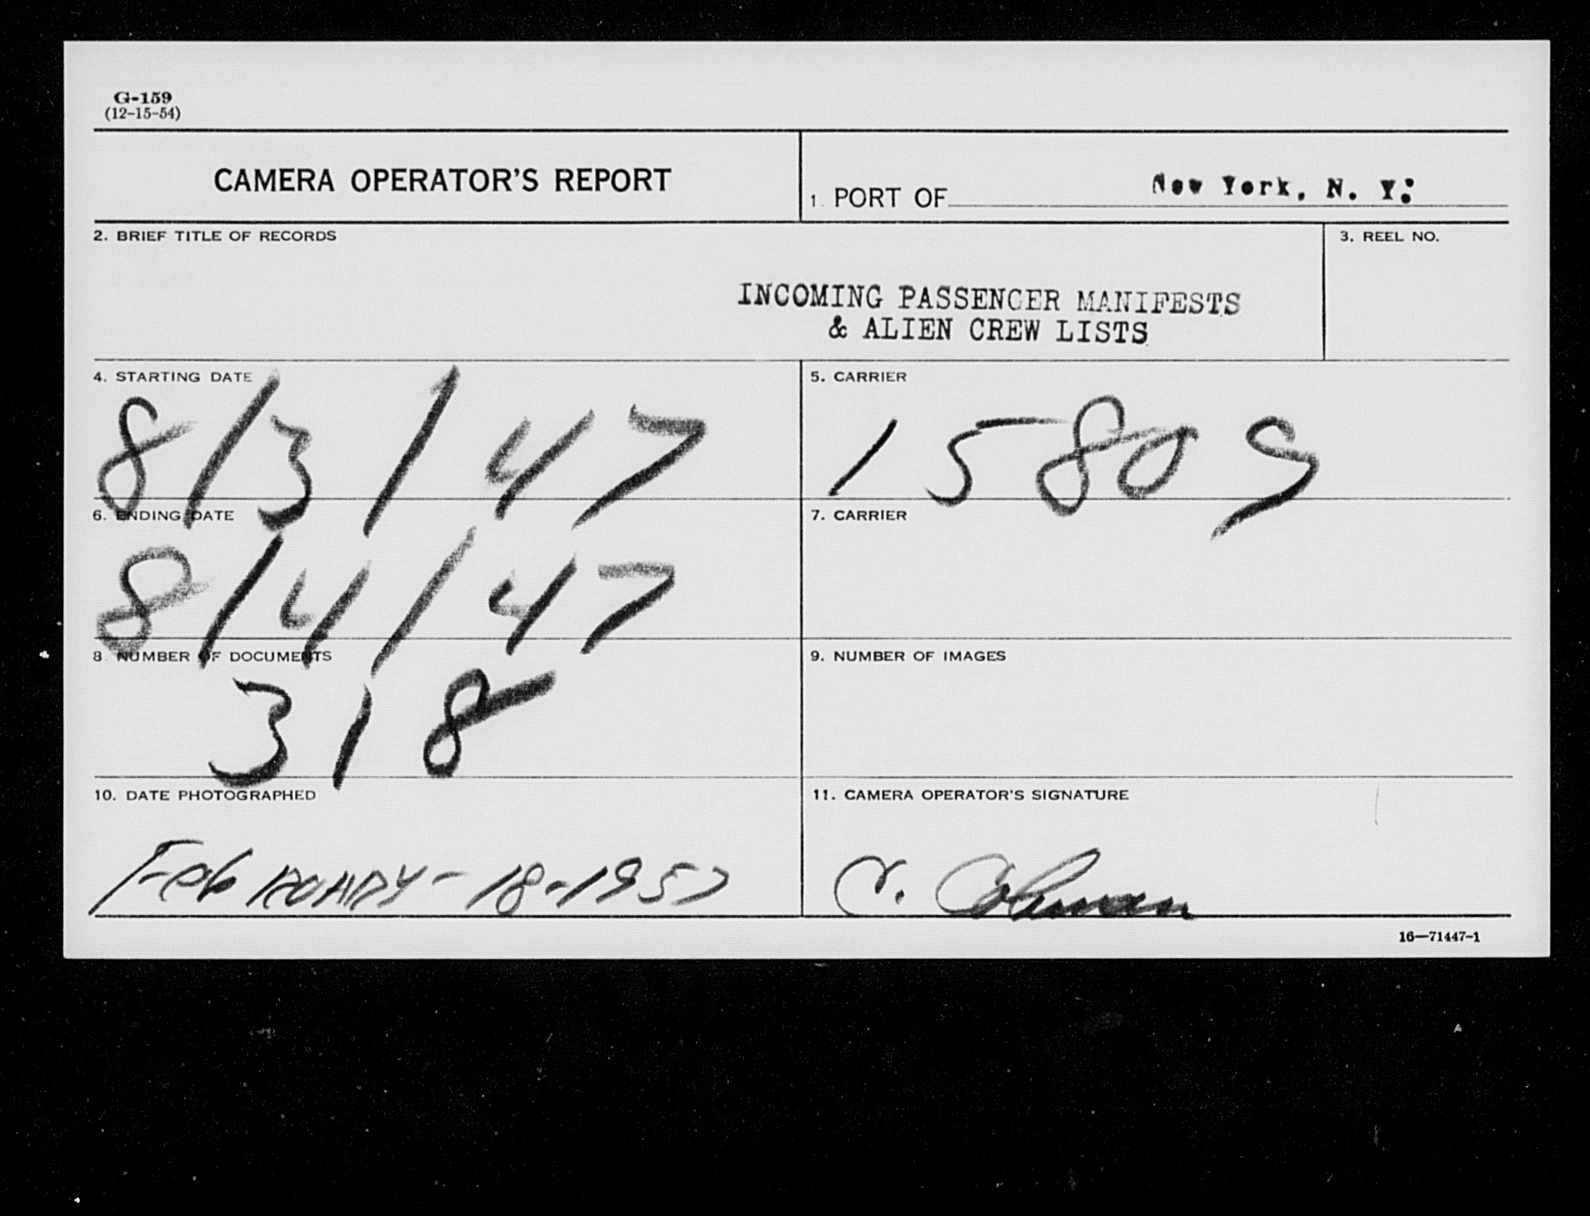 G-159
(12-15-54)
CAMERA OPERATOR'S REPORT
1. PORT OF New York, N. Y.
2. BRIEF TITLE OF RECORDS
3. REEL NO.
INCOMING PASSENGER MANIFESTS
& ALIEN CREW LISTS
4. STARTING DATE
5. CARRIER
8/3/47
15809
6. ENDING DATE
7. CARRIER
8/4/47
8. NUMBER OF DOCUMENTS
9. NUMBER OF IMAGES
318
10. DATE PHOTOGRAPHED
11. CAMERA OPERATOR'S SIGNATURE
FebRUARY-18-1957
16—71447-1